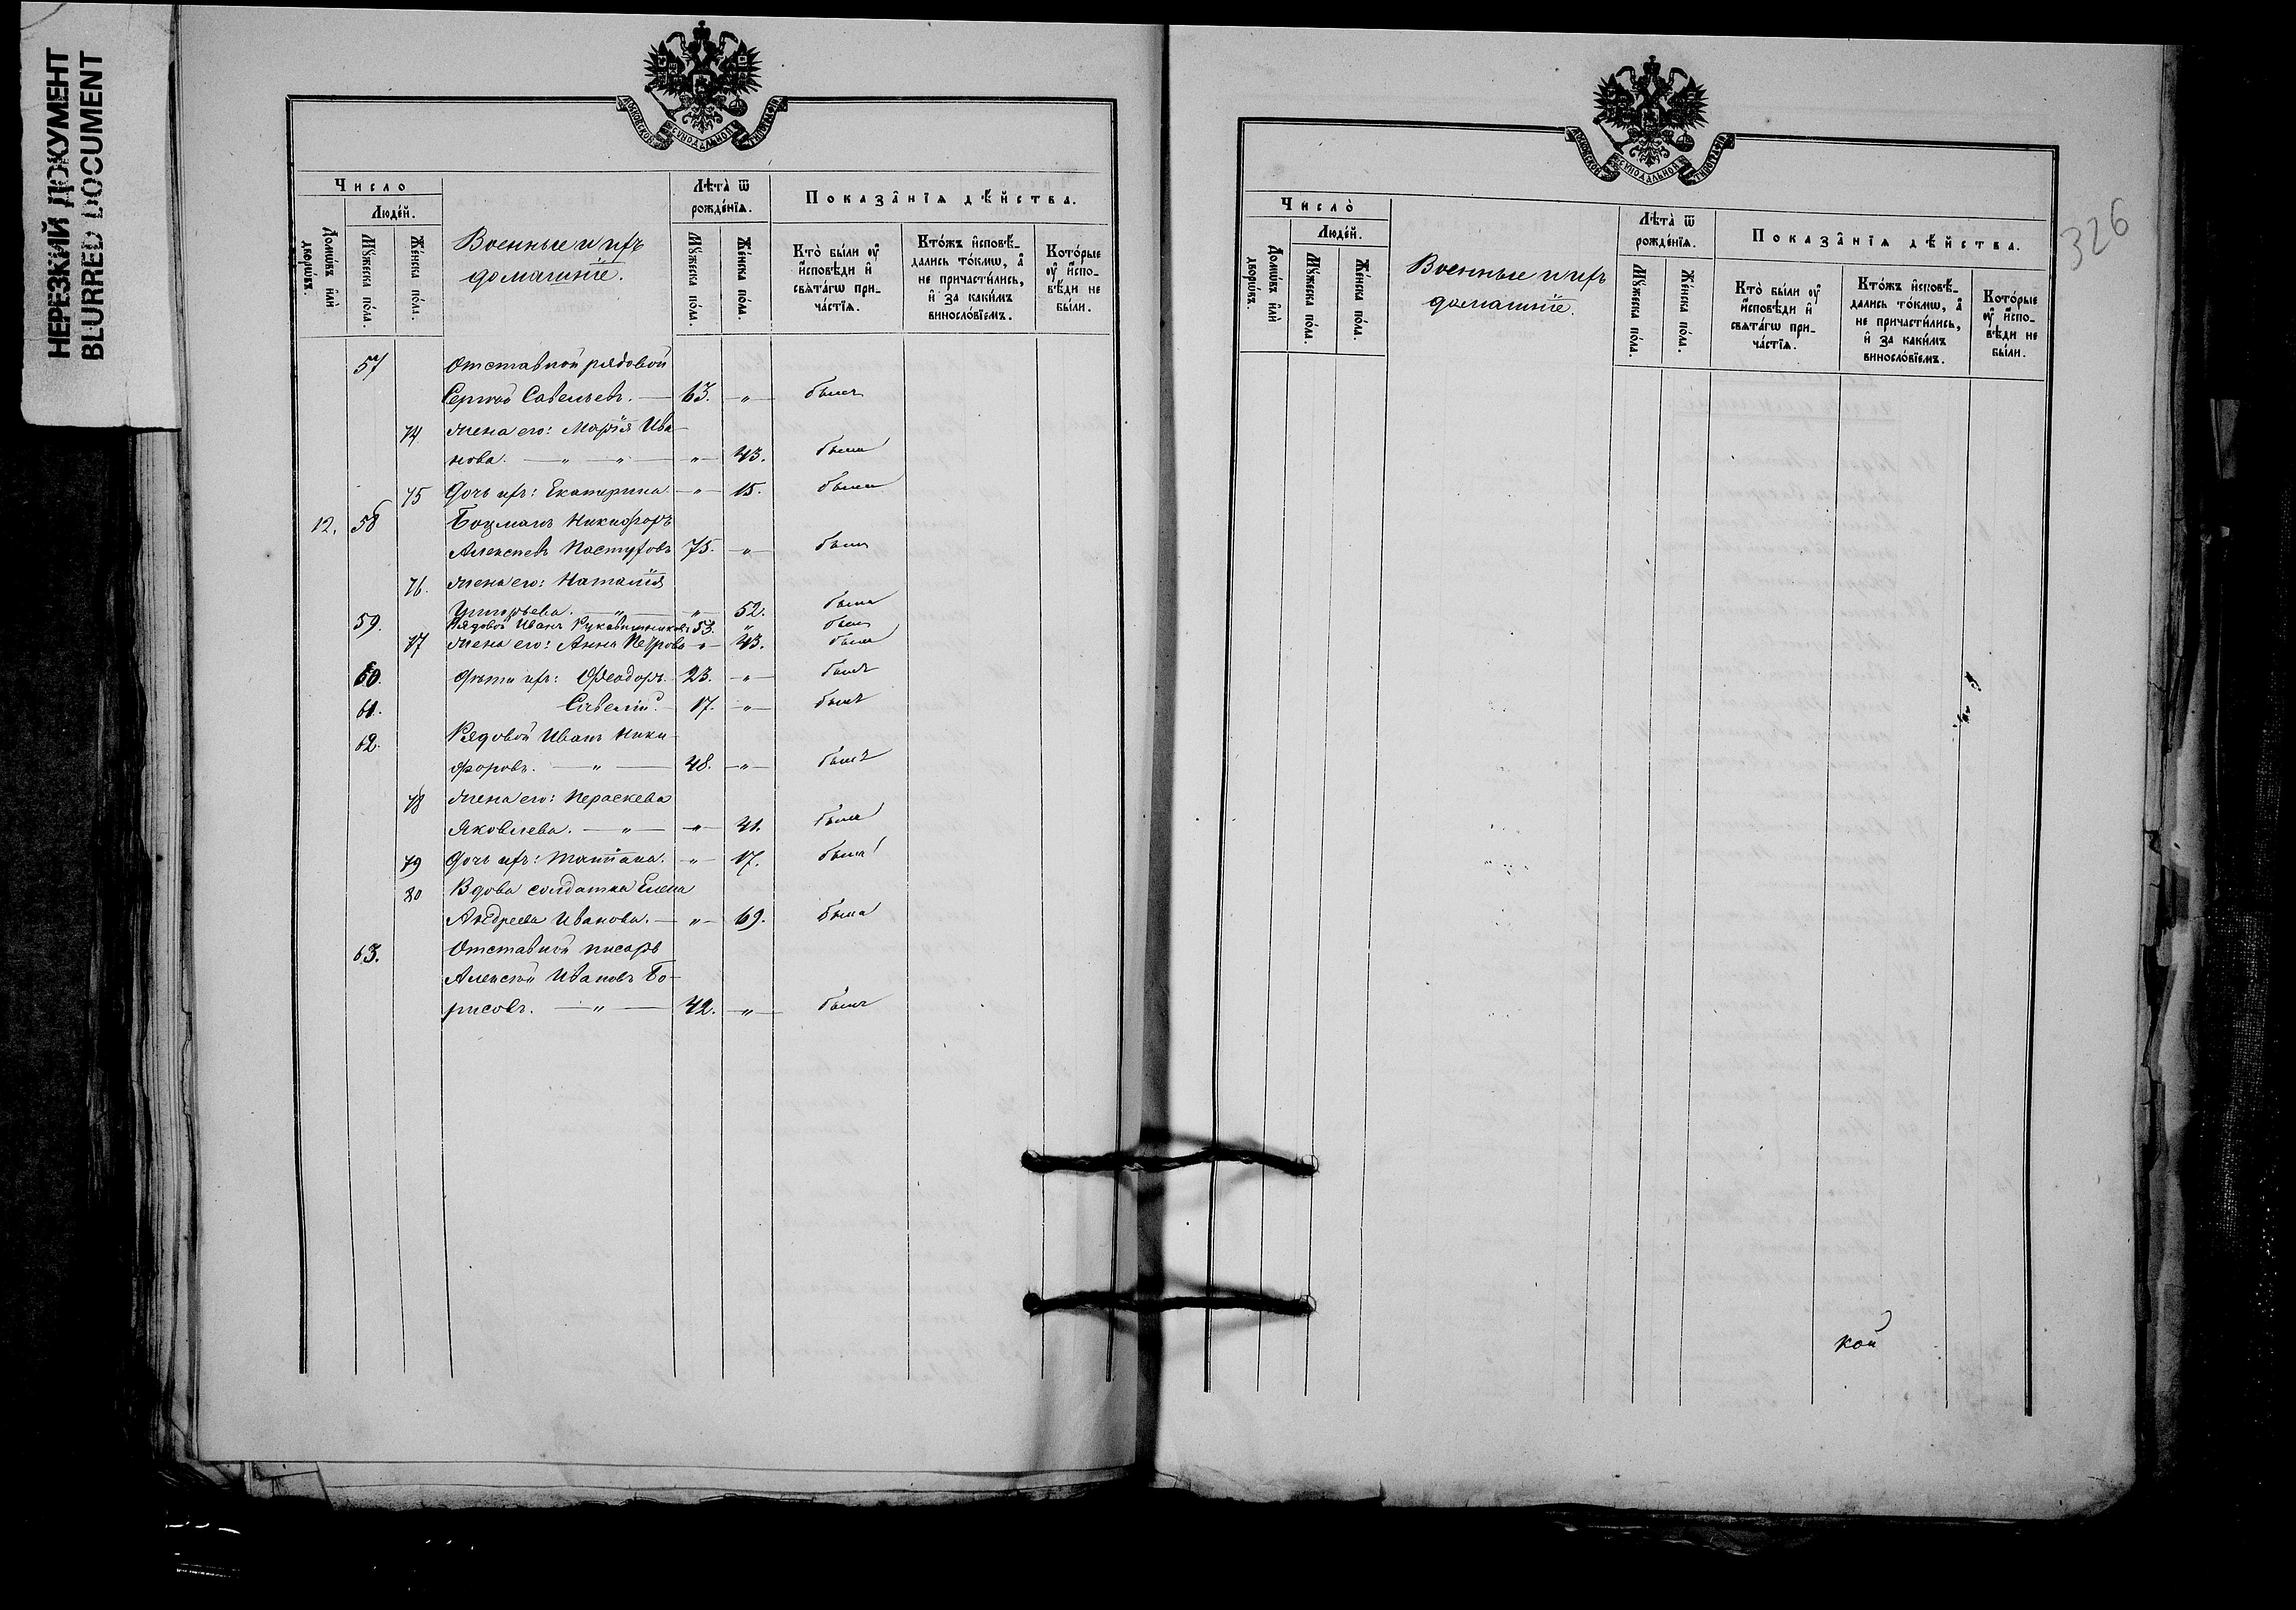 НЕРЕЗКИЙ ДОКУМЕНТ
BLURRED DOCUMENT
МОСКОВСКОЙ СУНОДАЛЬНОЙ ТИПОГРАФІИ
Число
Людей.
Домѡвъ или дворѡвъ.
Мꙋжеска пола.
Женска пола.
Военные и ихъ
домашніе.
Лѣта ѿ
рожденїѧ.
Мꙋжеска пола.
Женска пола.
Показанїѧ дѣйства.
Кто были оу
исповѣди и
свѧтагѡ при-
частїѧ.
Ктожъ исповѣ-
дались токмѡ, а
не причастились,
и за какимъ
винословїемъ.
Которые
оу испо-
вѣди не
были.
57 Отставной рядовой
Сергѣй Савельевъ. — 63. — „ — былъ
74 жена его: Марія Ива-
нова. — „ — „ — „ — 43. была
75 Дочь ихъ: Екатерина — „ — 15. была
12. 58 Боцманъ Никифоръ
Алексѣевъ Пастуховъ 75. — „ — былъ
76. жена его: Наталія
Григорьева. — „ — „ — 52. была
59. Рядовой Иванъ Рукавишниковъ 53. „ былъ
77 жена его: Анна Петрова — „ — 43. была
60. Дѣти ихъ: Ѳеодоръ. 23. — „ — былъ
61. Савелій. 17. — „ — былъ
62. Рядовой Иванъ Ники-
форовъ. — „ — 48. — „ — былъ
78 жена его: Пераскева
Яковлева. — „ — „ — 41. была
79 Дочь ихъ: Татіана. — „ — 17. была
80 Вдова солдатка Елена
Андреева Иванова. — „ — 69. была
63. Отставной писарь
Алексѣй Ивановъ Бо-
рисовъ. — „ — 42. — „ — былъ
326
МОСКОВСКОЙ СУНОДАЛЬНОЙ ТИПОГРАФІИ
Число
Людей.
Домѡвъ или дворѡвъ.
Мꙋжеска пола.
Женска пола.
Военные и ихъ
домашніе.
Лѣта ѿ
рожденїѧ.
Мꙋжеска пола.
Женска пола.
Показанїѧ дѣйства.
Кто были оу
исповѣди и
свѧтагѡ при-
частїѧ.
Ктожъ исповѣ-
дались токмѡ, а
не причастились,
и за какимъ
винословїемъ.
Которые
оу испо-
вѣди не
были.
кой